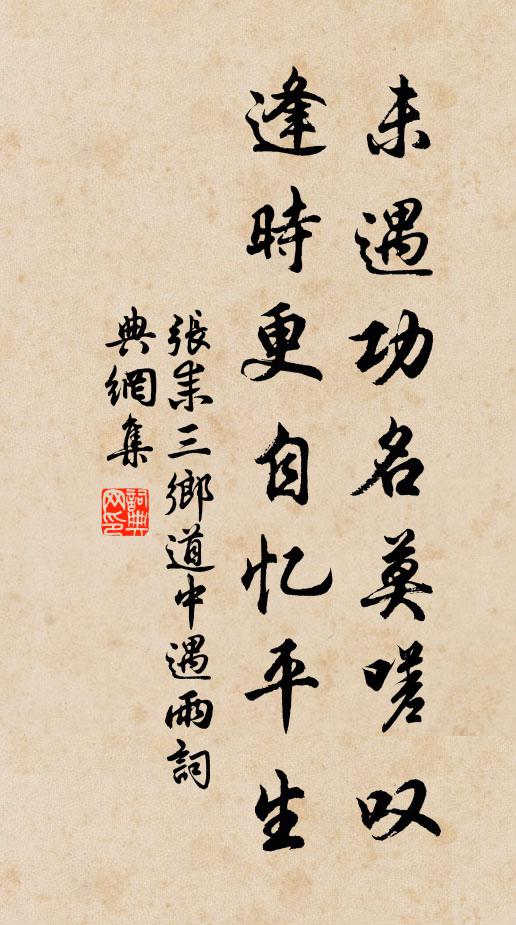 未遇功名莫嗟叹
逢時更自忆平生
張耒三鄉道中遇雨詞
典網集
詞典網印